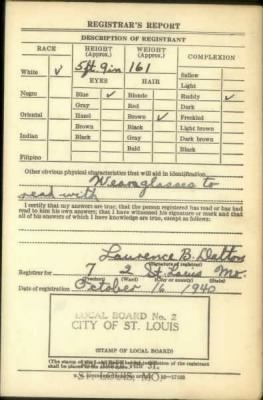 REGISTRAR'S REPORT
DESCRIPTION OF REGISTRANT
RACE HEIGHT (Approx.) WEIGHT (Approx.) COMPLEXION
White ✓ 5ft. 9in 161 Sallow
EYES HAIR Light
Negro Blue ✓ Blonde Ruddy ✓
Gray Red Dark
Oriental Hazel Brown ✓ Freckled
Brown Black Light brown
Indian Black Gray Dark brown
Bald Black
Filipino
Other obvious physical characteristics that will aid in identification
Wears glasses to
read with
I certify that my answers are true; that the person registered has read or has had
read to him his own answers; that I have witnessed his signature or mark and that
all of his answers of which I have knowledge are true, except as follows:
Laurence B. Dalton
(Signature of registrar)
Registrar for 7 2 St. Louis Mo.
(Precinct) (Ward) (City or county) (State)
Date of registration October 16 1940
LOCAL BOARD No. 2
CITY OF ST. LOUIS
(STAMP OF LOCAL BOARD)
(The stamp of the Local Board having jurisdiction of the registrant
shall be placed in the above space.)
ST. LOUIS, MO.